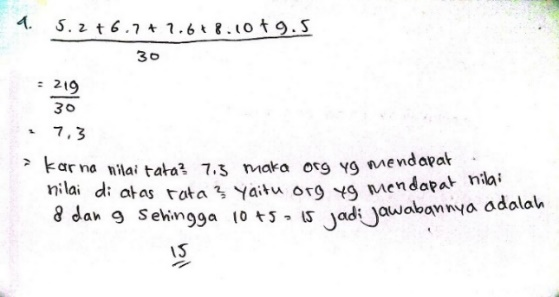 1. 5.2 + 6.7 + 7.6 + 8.10 + 9.5
30
= 219
30
= 7,3
> karna nilai rata² 7,3 maka org yg mendapat
nilai di atas rata² yaitu org yg mendapat nilai
8 dan 9 Sehingga 10 + 5 = 15 jadi jawabannya adalah
15